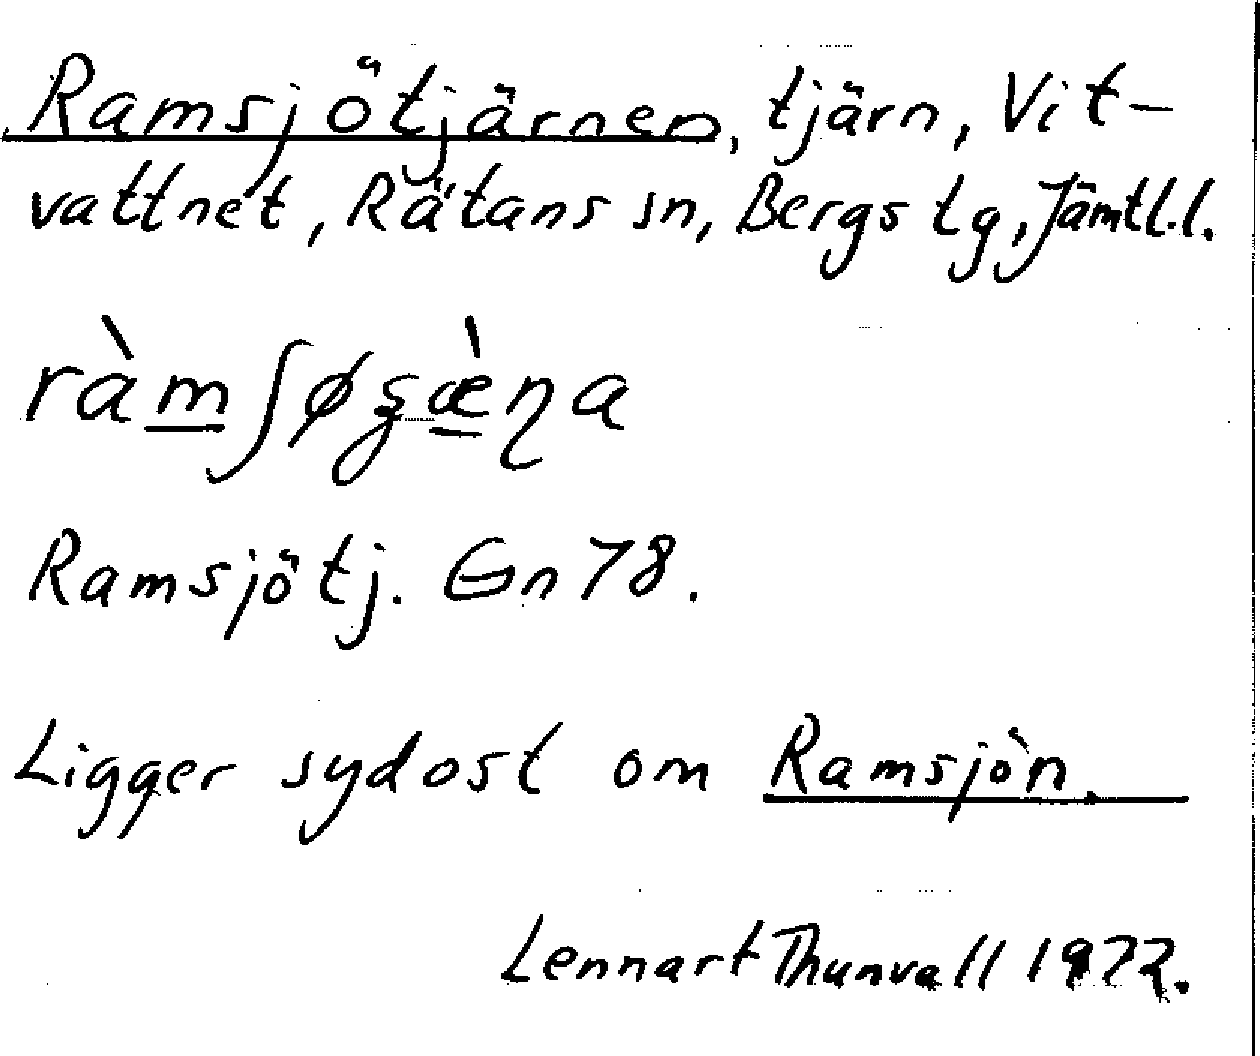 Ramsjötjärnen, tjärn, Vit-
vattnet, Rätans sn, Bergs tg, Jämtl.l.
Ramsjötj. Gn 78.
Ligger sydost om Ramsjön.
Lennart Thunvall 1972.